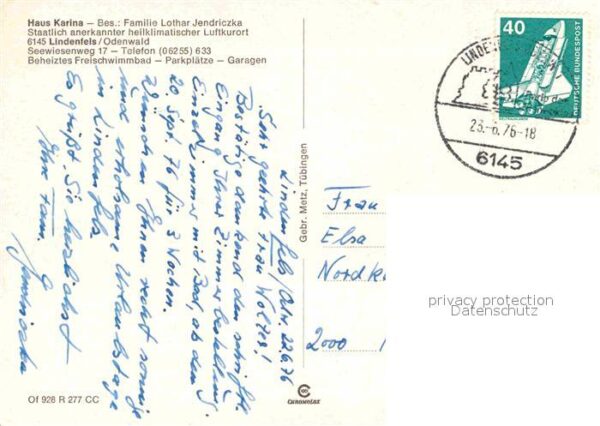 Haus Karina — Bes.: Familie Lothar Jendriczka
Staatlich anerkannter heilklimatischer Luftkurort
6145 Lindenfels/Odenwald
Seewiesenweg 17 — Telefon (06255) 633
Beheiztes Freischwimmbad — Parkplätze — Garagen
40
DEUTSCHE BUNDESPOST
23.-6.76-18
6145
Lindenfels/Odw. 22.6.76
Sehr geehrte Frau
Bestätige dankend den schriftl.
Eingang Ihrer Zimmerbestellung
Einzelzimmer mit Bad, ab dem
20 Sept. 76 für 3 Wochen.
Wünsche Ihnen recht sonnige
und erholsame Urlaubstage
in Lindenfels.
Es grüßt Sie herzlichst
Ihre Fam.
Jendriczka
Gebr. Metz, Tübingen
Frau
Elsa
2000
privacy protection
Datenschutz
Of 928 R 277 CC
CHROMOLUX